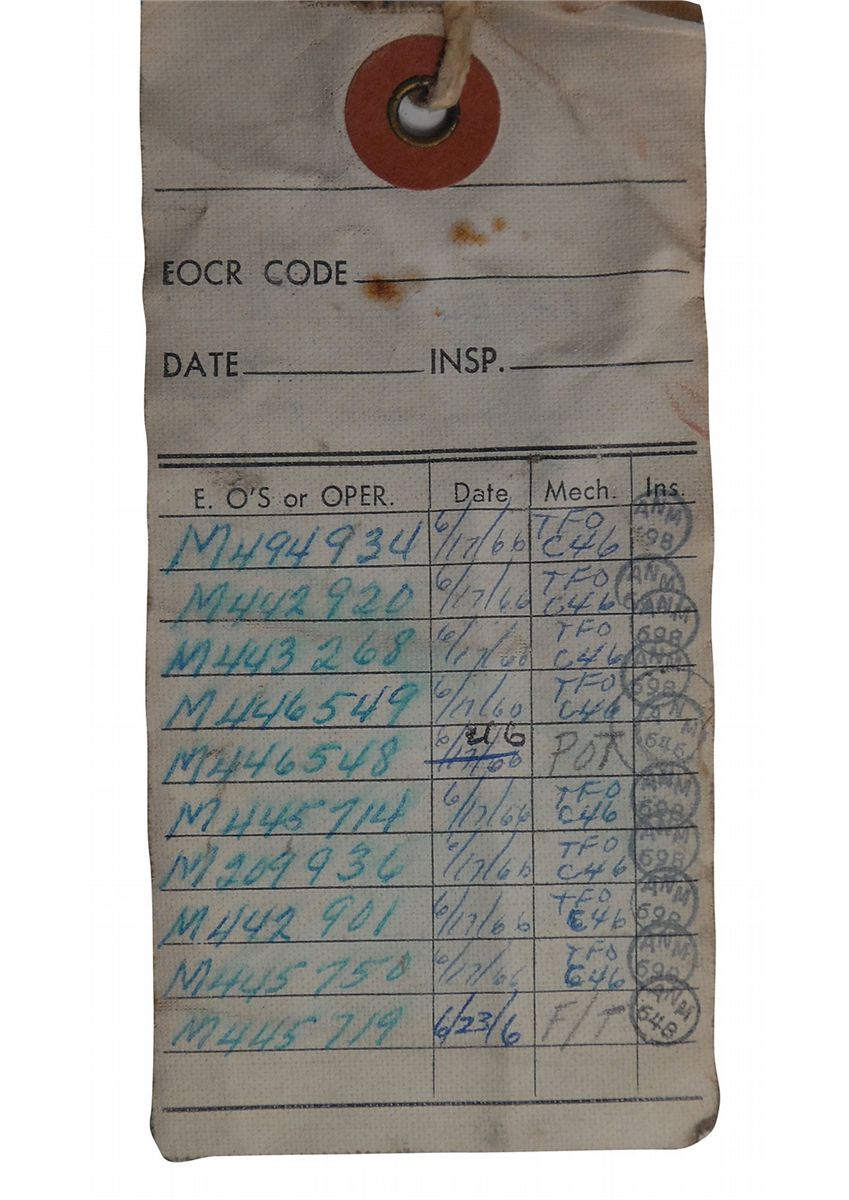 EOCR CODE
DATE INSP.
E. O'S or OPER. Date Mech. Ins
M494934 6/17/66 TFO C46 ANM 69B
M442920 6/17/66 TFO C46 ANM
M443268 6/17/66 TFO C46 ANM 69B
M446549 6/17/60 TFO C46 ANM 69B
M446548 6/17/66 POT
M445714 6/17/66 TFO C46 ANM 69B
M209936 6/17/66 TFO C46 ANM 69B
M442901 6/17/66 TFO C46 ANM 69B
M445750 6/17/66 TFO C46 ANM 69B
M445719 6/23/6 F/T ANM 64B